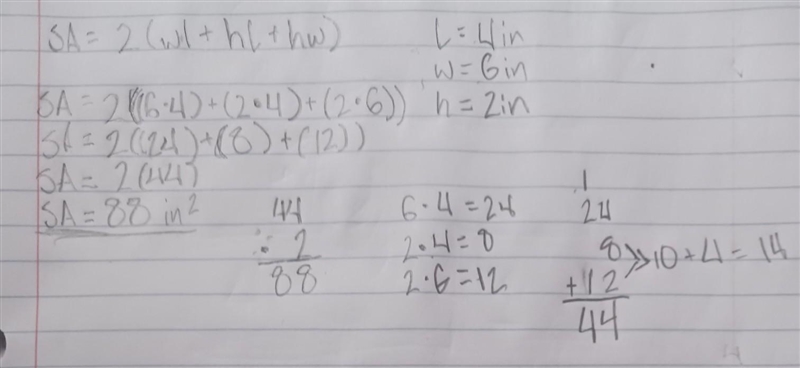 SA = 2(wl + hl + hw)
l = 4in
w = 6in
h = 2in
SA = 2((6·4)+(2·4)+(2·6))
SA = 2((24)+(8)+(12))
SA = 2(44)
SA = 88 in²
44
· 2
88
6·4=24
2·4=8
2·6=12
1
24
8 > 10+4=14
+12
44